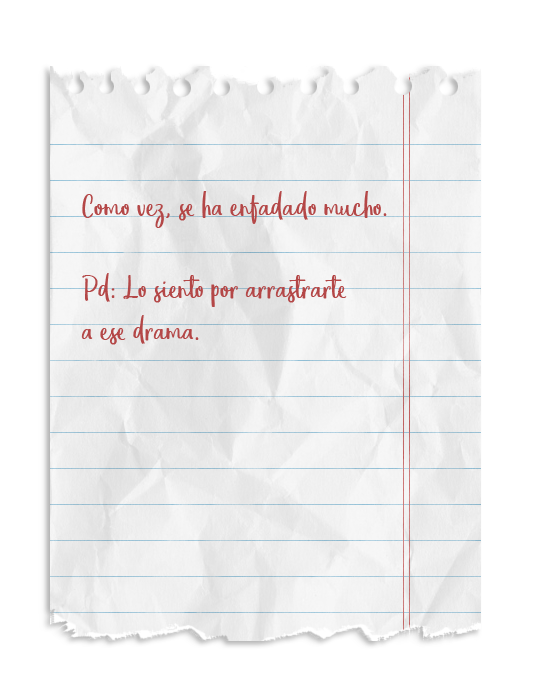 Como vez, se ha enfadado mucho.
Pd: Lo siento por arrastrarte
a ese drama.